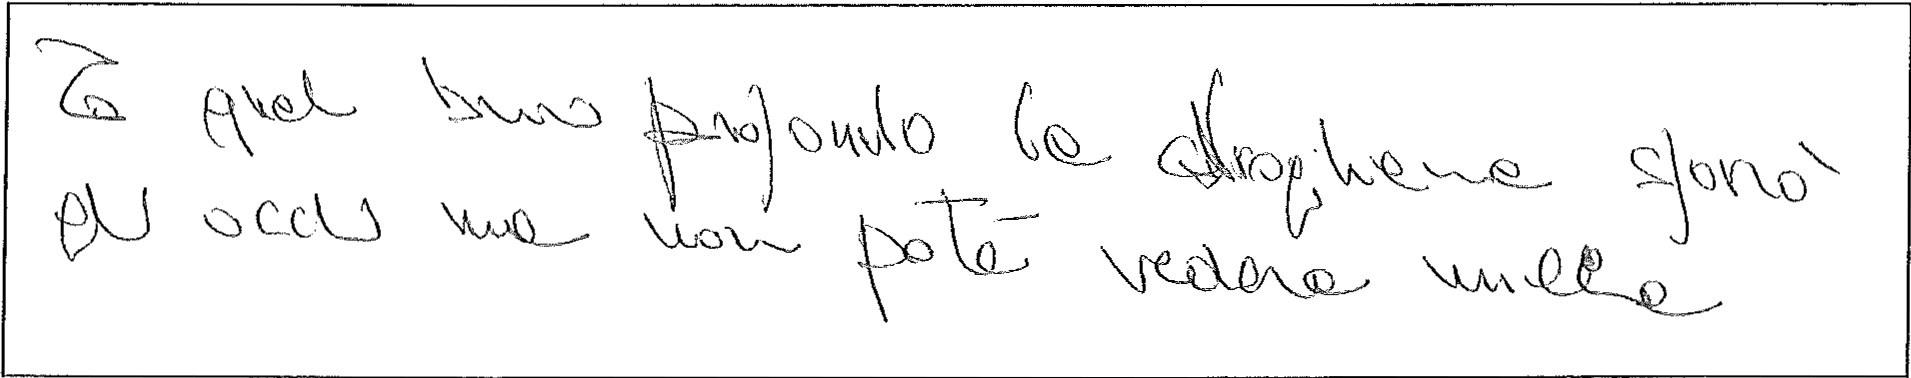 In quel buio profondo la droghiera sforzò
gli occhi ma non poté vedere nulla